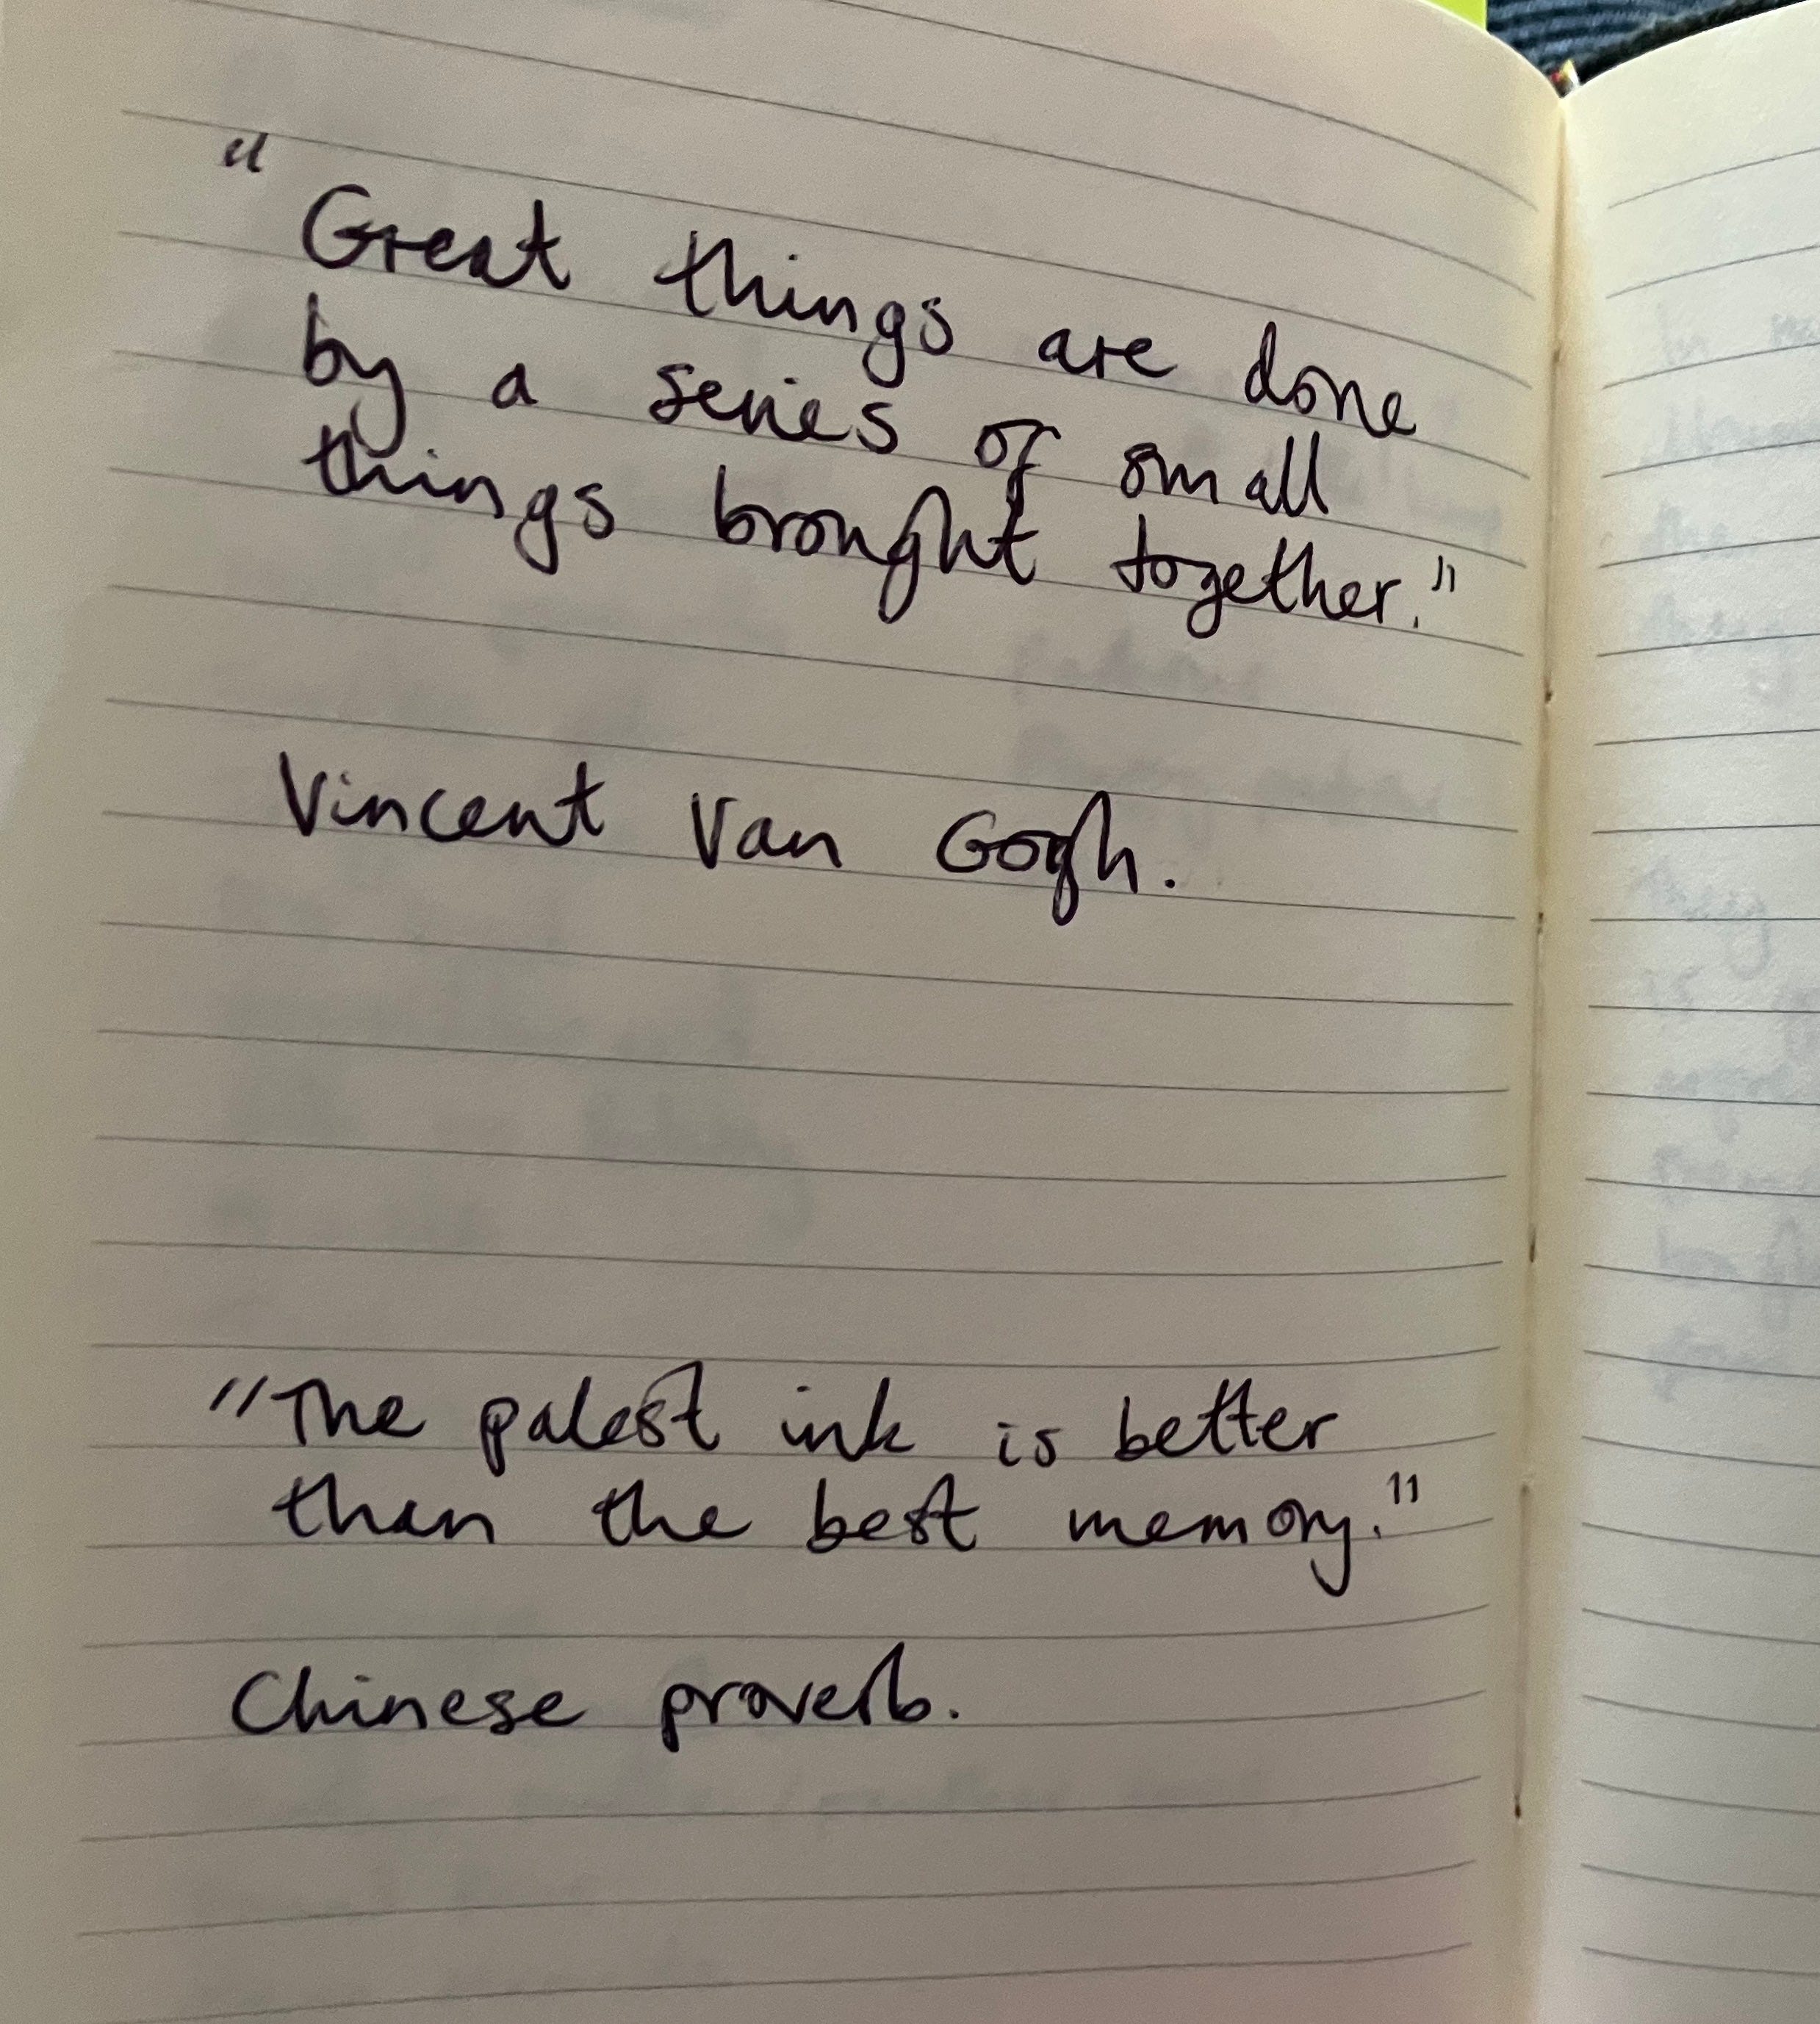 "Great things are done
by a series of small
things brought together."
Vincent Van Gogh.
"The palest ink is better
than the best memory."
Chinese proverb.